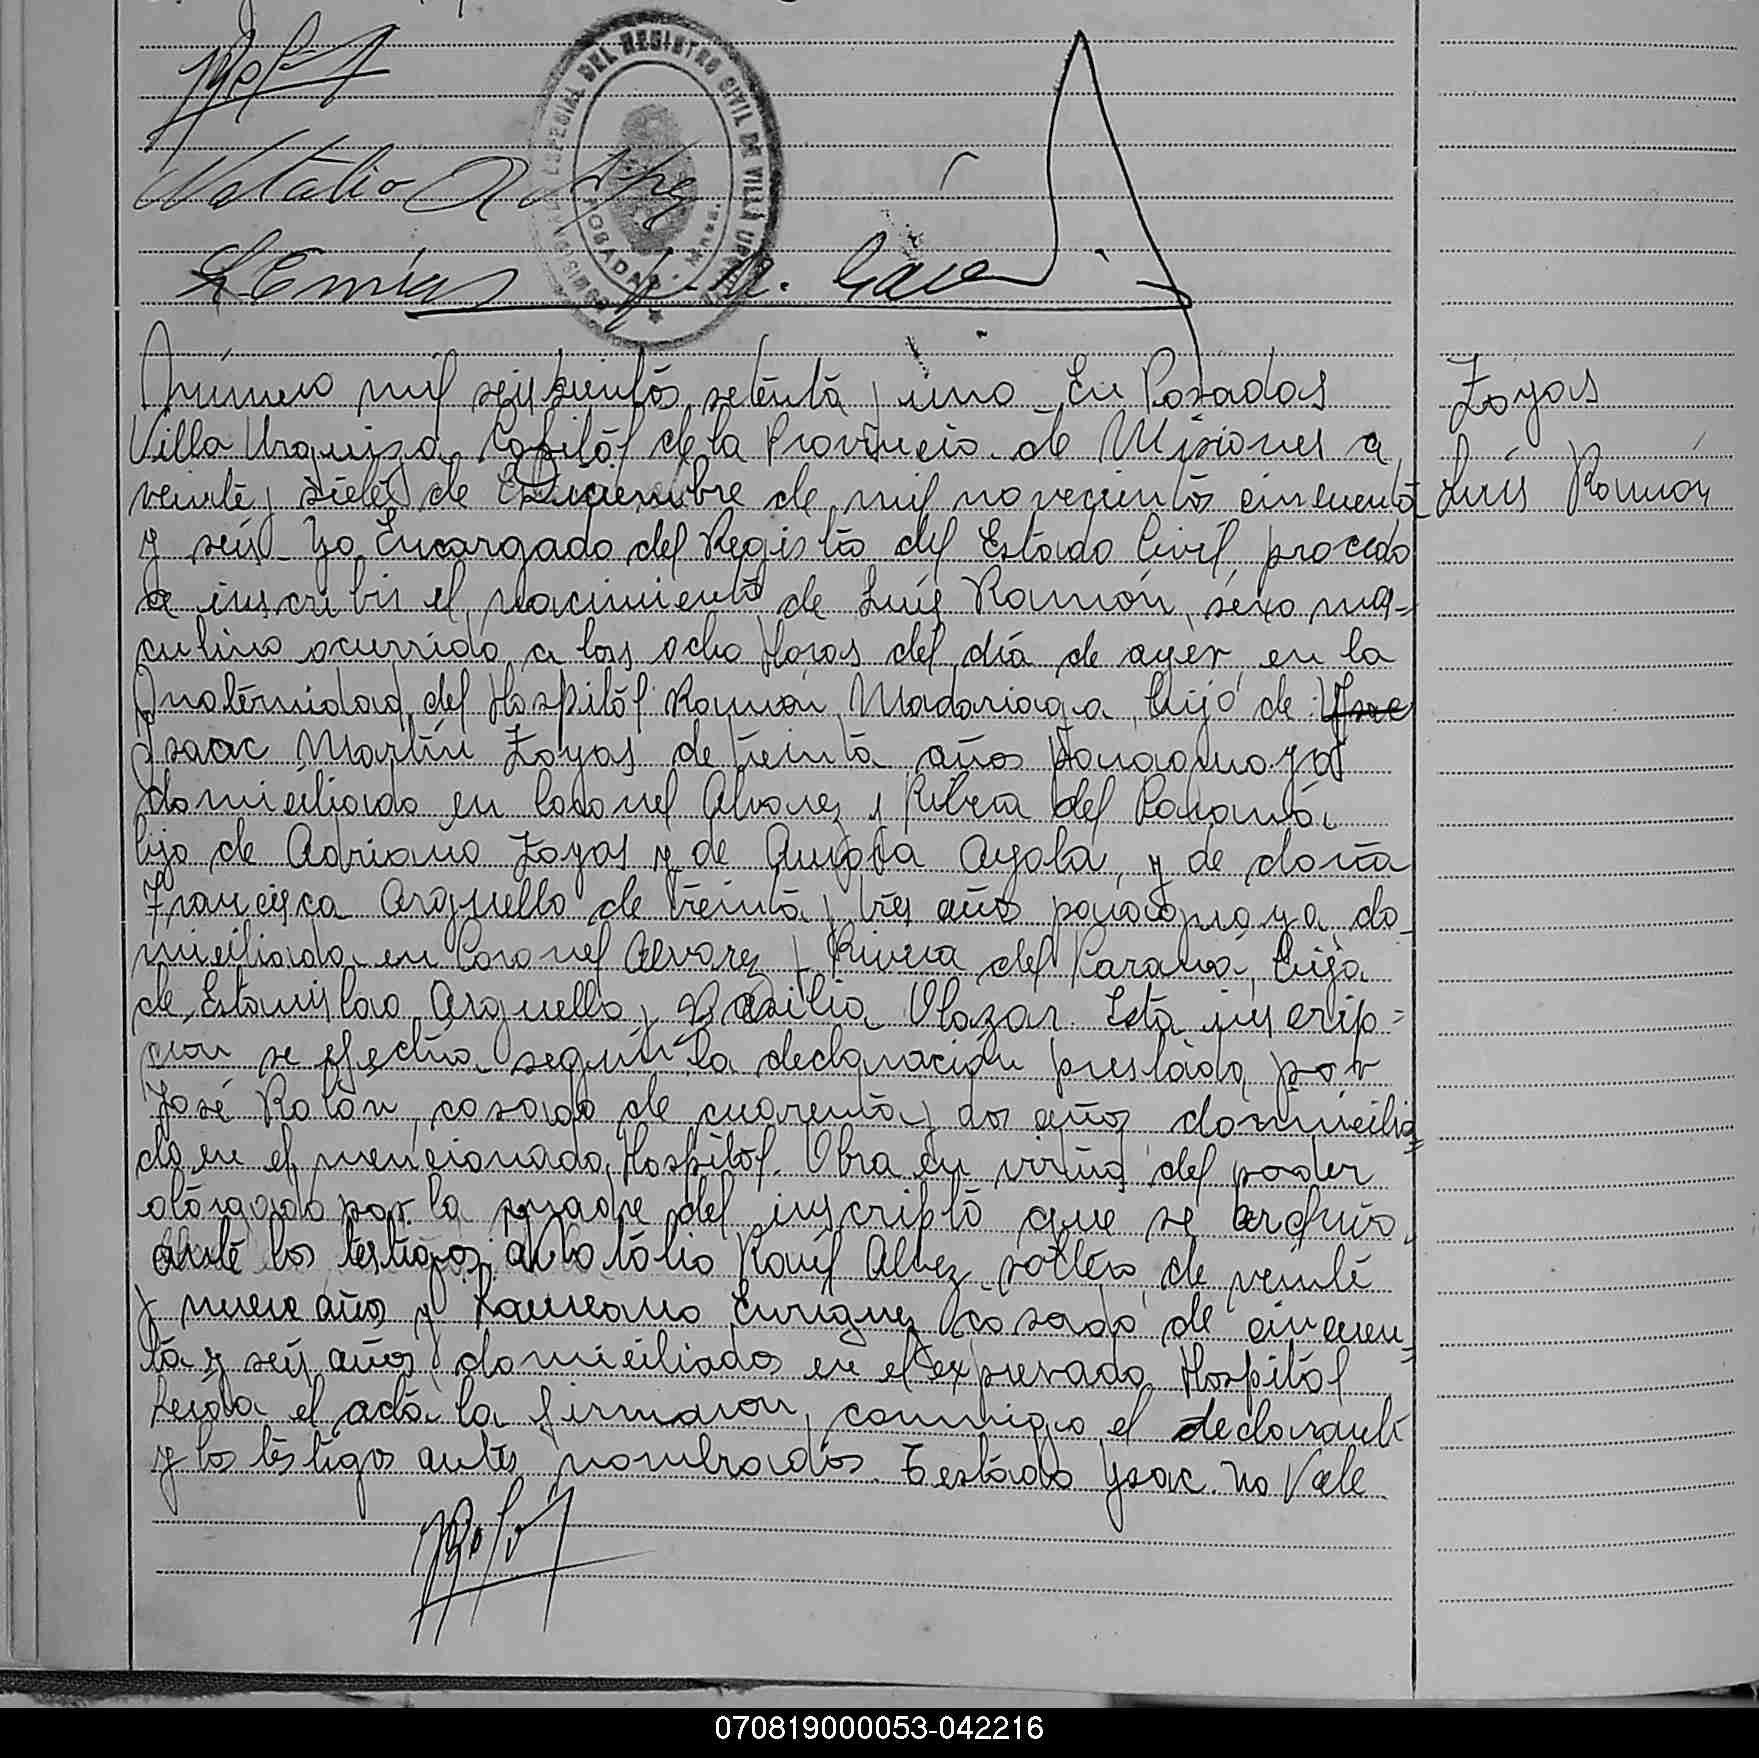 COMISARIA ESPECIAL DEL REGISTRO CIVIL DE VILLA URQUIZA
POSADAS - Mnes.
Natalio R Alvez
REnriquez
Número mil seiscientos setenta y uno - En Posadas
Villa Urquiza Capital de la Provincia de Misiones a
veinte y siete de Diciembre de mil novecientos cincuenta
y seis - Yo Encargado del Registro del Estado Civil, procedo
a inscribir el nacimiento de Luís Ramón, sexo mas=
culino ocurrido a las ocho Horas del día de ayer, en la
Maternidad del Hospital Ramón Madariaga, hijo de Ysac
Isaac Martín Zoyas de treinta años paraguayo
domiciliado en Coronel Alvarez y Ribera del Paraná,
hijo de Adriano Zoyas y de Aurora Ayala, y de doña
Francisca Arguello de treinta y tres años paraguaya do_
miciliada en Coronel Alvarez y Rivera del Paraná, hija
de Estanislao Arguello y Basilia Olazar. Esta inscrip=
cion se efectúa según la declaración prestada por
José Rolón, casado de cuarenta y dos años domicilia=
do en el mencionado Hospital. Obra en virtud del poder
otorgado por la madre del inscripto que se archiva,
ante los testigos Natalio Raúl Alvez soltero, de veinte
y nueve años y Enriquez casado de cincuen=
ta y seis años, domiciliados en el expresado Hospital
Leída el acta la firmaron, conmigo el declarante
y los testigos antes nombrados. Testado Ysac. no Vale
Zoyas
Luís Ramón
070819000053-042216